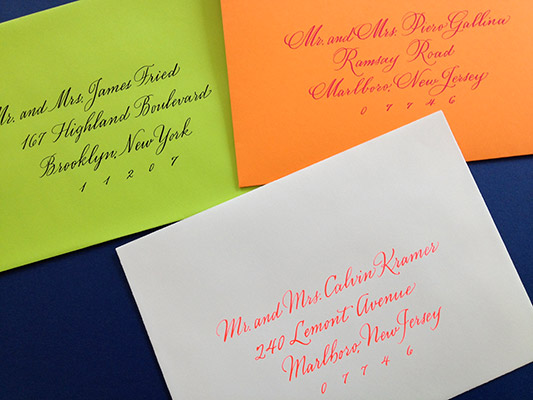 Mr. and Mrs. James Fried
167 Highland Boulevard
Brooklyn, New York
11207
Mr. and Mrs. Piero Gallina
Ramsay Road
Marlboro, New Jersey
07746
Mr. and Mrs. Calvin Kramer
240 Lemont Avenue
Marlboro, New Jersey
07746